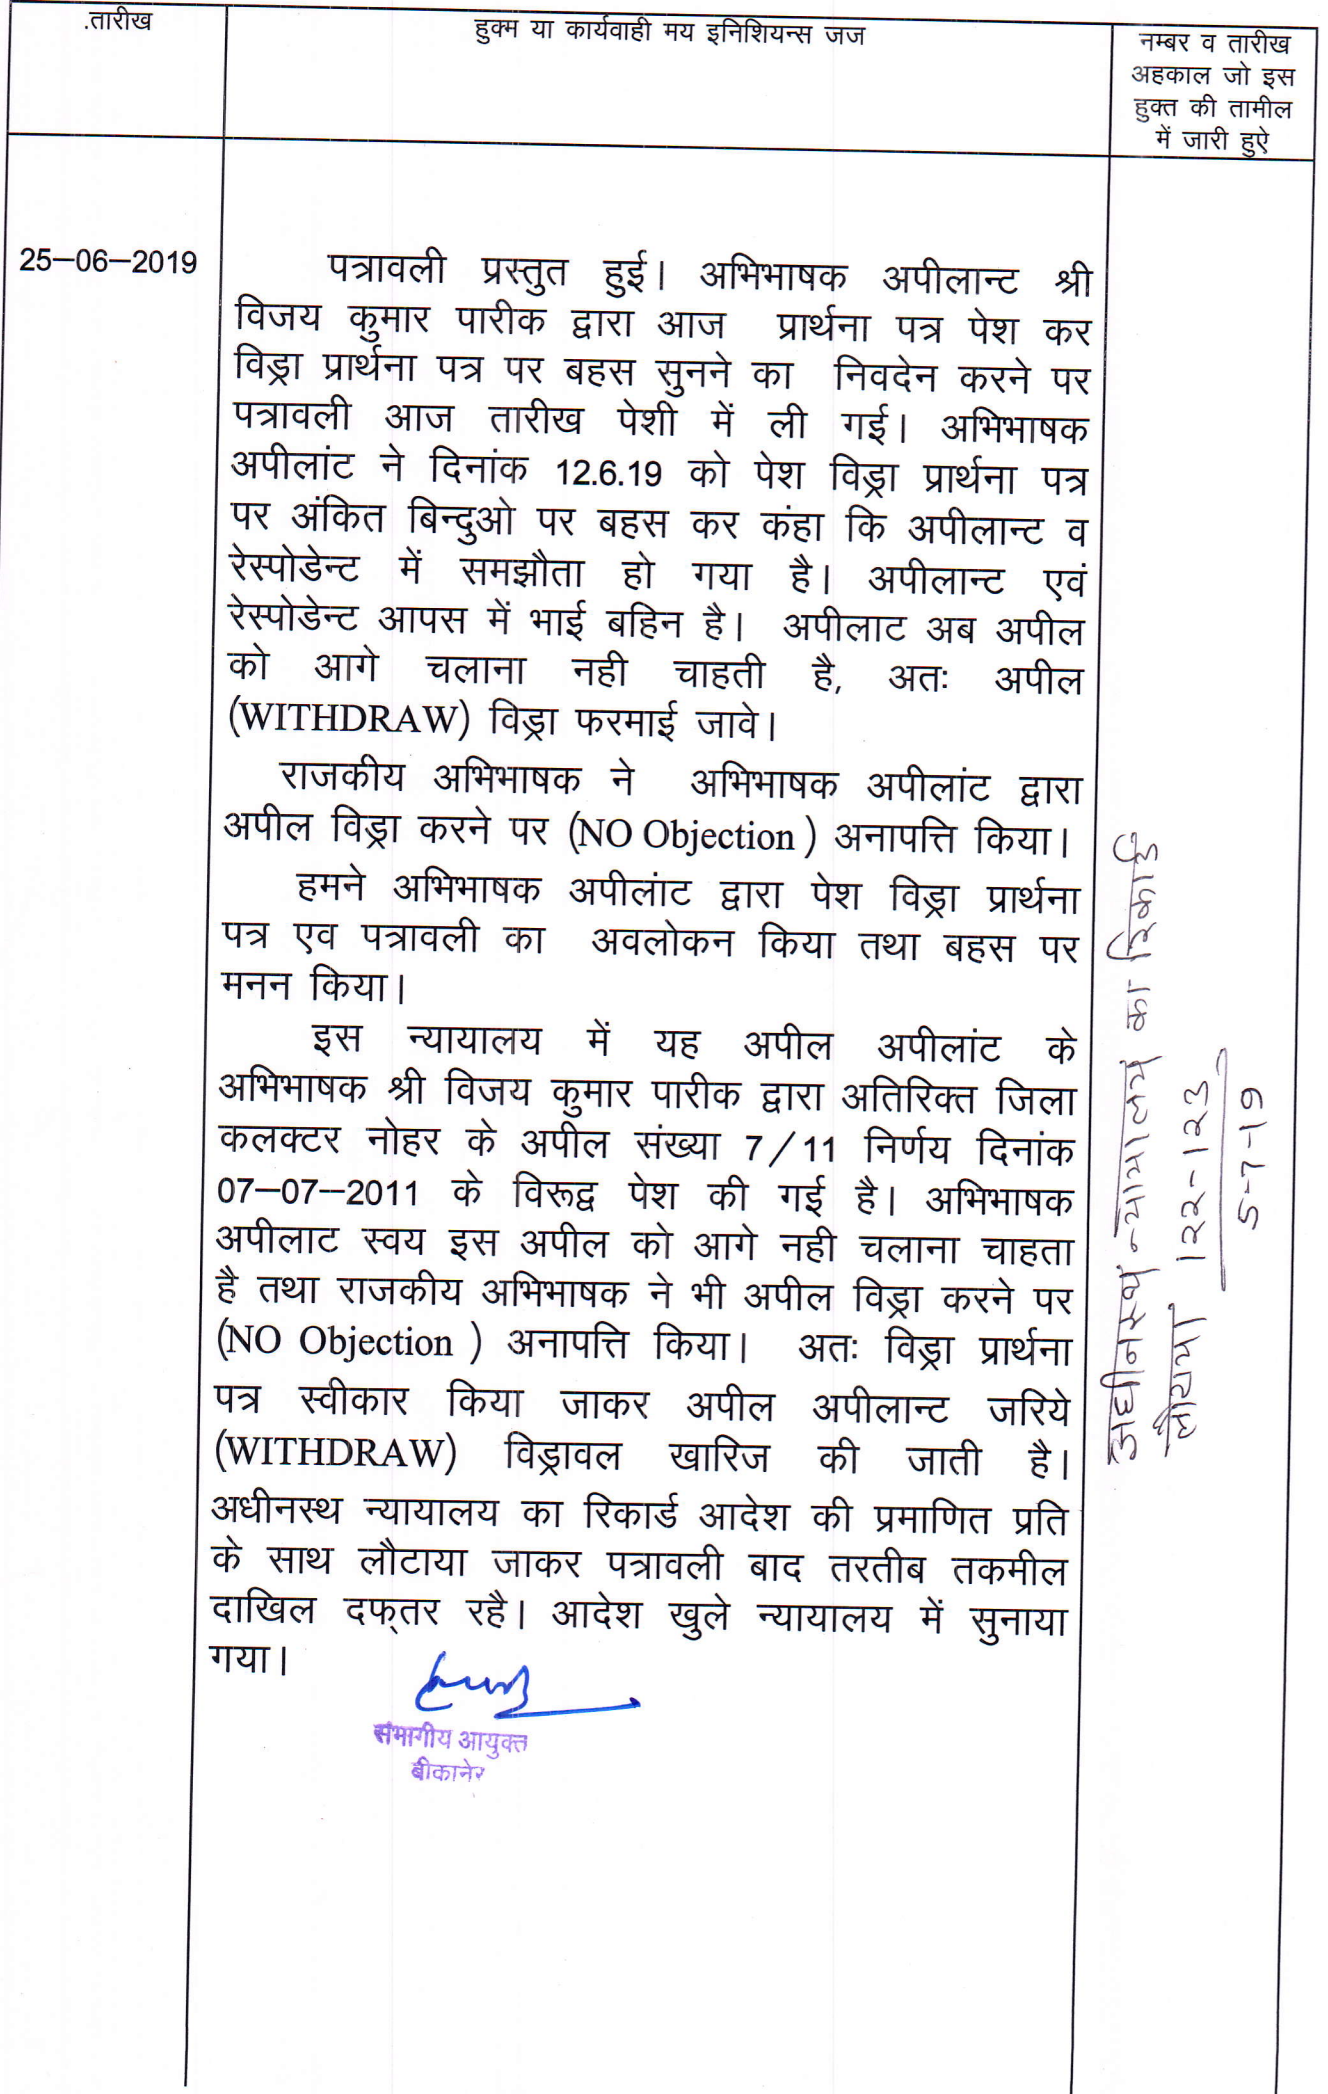 .तारीख
हुक्म या कार्यवाही मय इनिशियन्स जज
नम्बर व तारीख
अहकाल जो इस
हुक्त की तामील
में जारी हुऐ
25–06–2019
पत्रावली प्रस्तुत हुई। अभिभाषक अपीलान्ट श्री
विजय कुमार पारीक द्वारा आज प्रार्थना पत्र पेश कर
विड्रा प्रार्थना पत्र पर बहस सुनने का निवदेन करने पर
पत्रावली आज तारीख पेशी में ली गई। अभिभाषक
अपीलांट ने दिनांक 12.6.19 को पेश विड्रा प्रार्थना पत्र
पर अंकित बिन्दुओ पर बहस कर कंहा कि अपीलान्ट व
रेस्पोडेन्ट में समझौता हो गया है। अपीलान्ट एवं
रेस्पोडेन्ट आपस में भाई बहिन है। अपीलाट अब अपील
को आगे चलाना नही चाहती है, अतः अपील
(WITHDRAW) विड्रा फरमाई जावे।
राजकीय अभिभाषक ने अभिभाषक अपीलांट द्वारा
अपील विड्रा करने पर (NO Objection ) अनापत्ति किया।
हमने अभिभाषक अपीलांट द्वारा पेश विड्रा प्रार्थना
पत्र एव पत्रावली का अवलोकन किया तथा बहस पर
मनन किया।
इस न्यायालय में यह अपील अपीलांट के
अभिभाषक श्री विजय कुमार पारीक द्वारा अतिरिक्त जिला
कलक्टर नोहर के अपील संख्या 7/11 निर्णय दिनांक
07–07–2011 के विरूद्व पेश की गई है। अभिभाषक
अपीलाट स्वय इस अपील को आगे नही चलाना चाहता
है तथा राजकीय अभिभाषक ने भी अपील विड्रा करने पर
(NO Objection ) अनापत्ति किया। अतः विड्रा प्रार्थना
पत्र स्वीकार किया जाकर अपील अपीलान्ट जरिये
(WITHDRAW) विड्रावल खारिज की जाती है।
अधीनस्थ न्यायालय का रिकार्ड आदेश की प्रमाणित प्रति
के साथ लौटाया जाकर पत्रावली बाद तरतीब तकमील
दाखिल दफ्तर रहै। आदेश खुले न्यायालय में सुनाया
गया।
संभागीय आयुक्त
बीकानेर
अधीनस्थ न्यायालय का रिकार्ड
लौटाया १२२-१२३
5-7-19